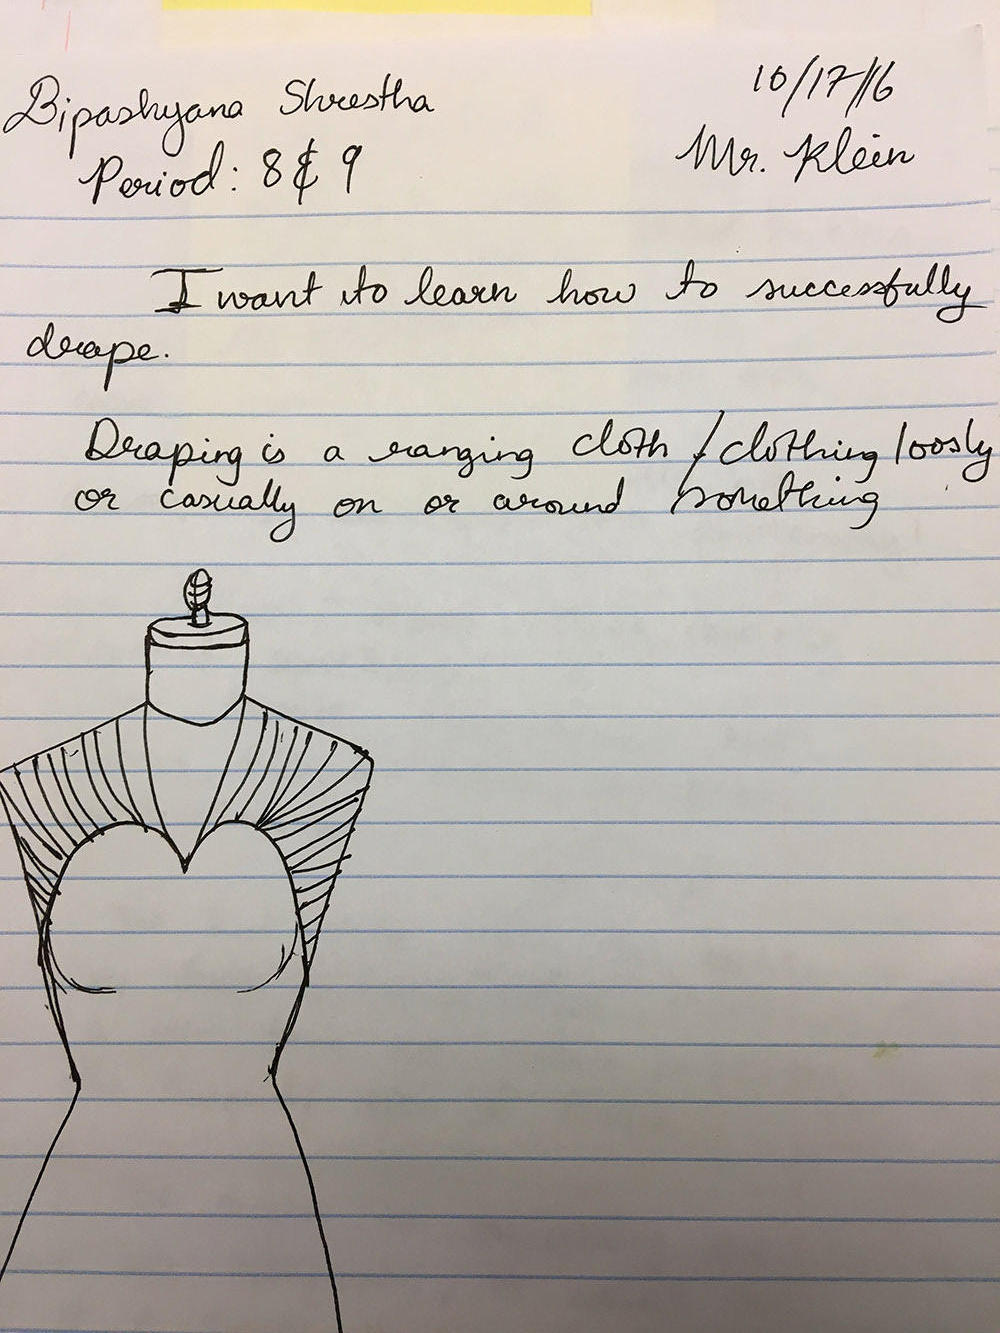 Bipashyana Shrestha 10/17/16
Period: 8 & 9 Mr. Klein
I want to learn how to successfully
drape.
Draping is a ranging cloth / clothing loosly
or casually on or around something